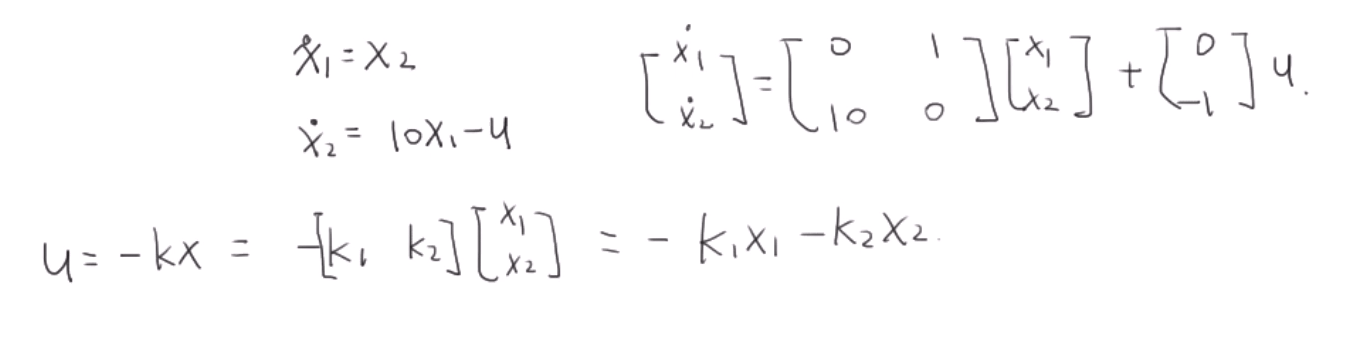 ẋ₁ = x₂
ẋ₂ = 10x₁ - u
[ẋ₁ ẋ₂] = [0 1 10 0][x₁ x₂] + [0 -1]u.
u = -kx = -[k₁ k₂][x₁ x₂] = -k₁x₁ - k₂x₂.